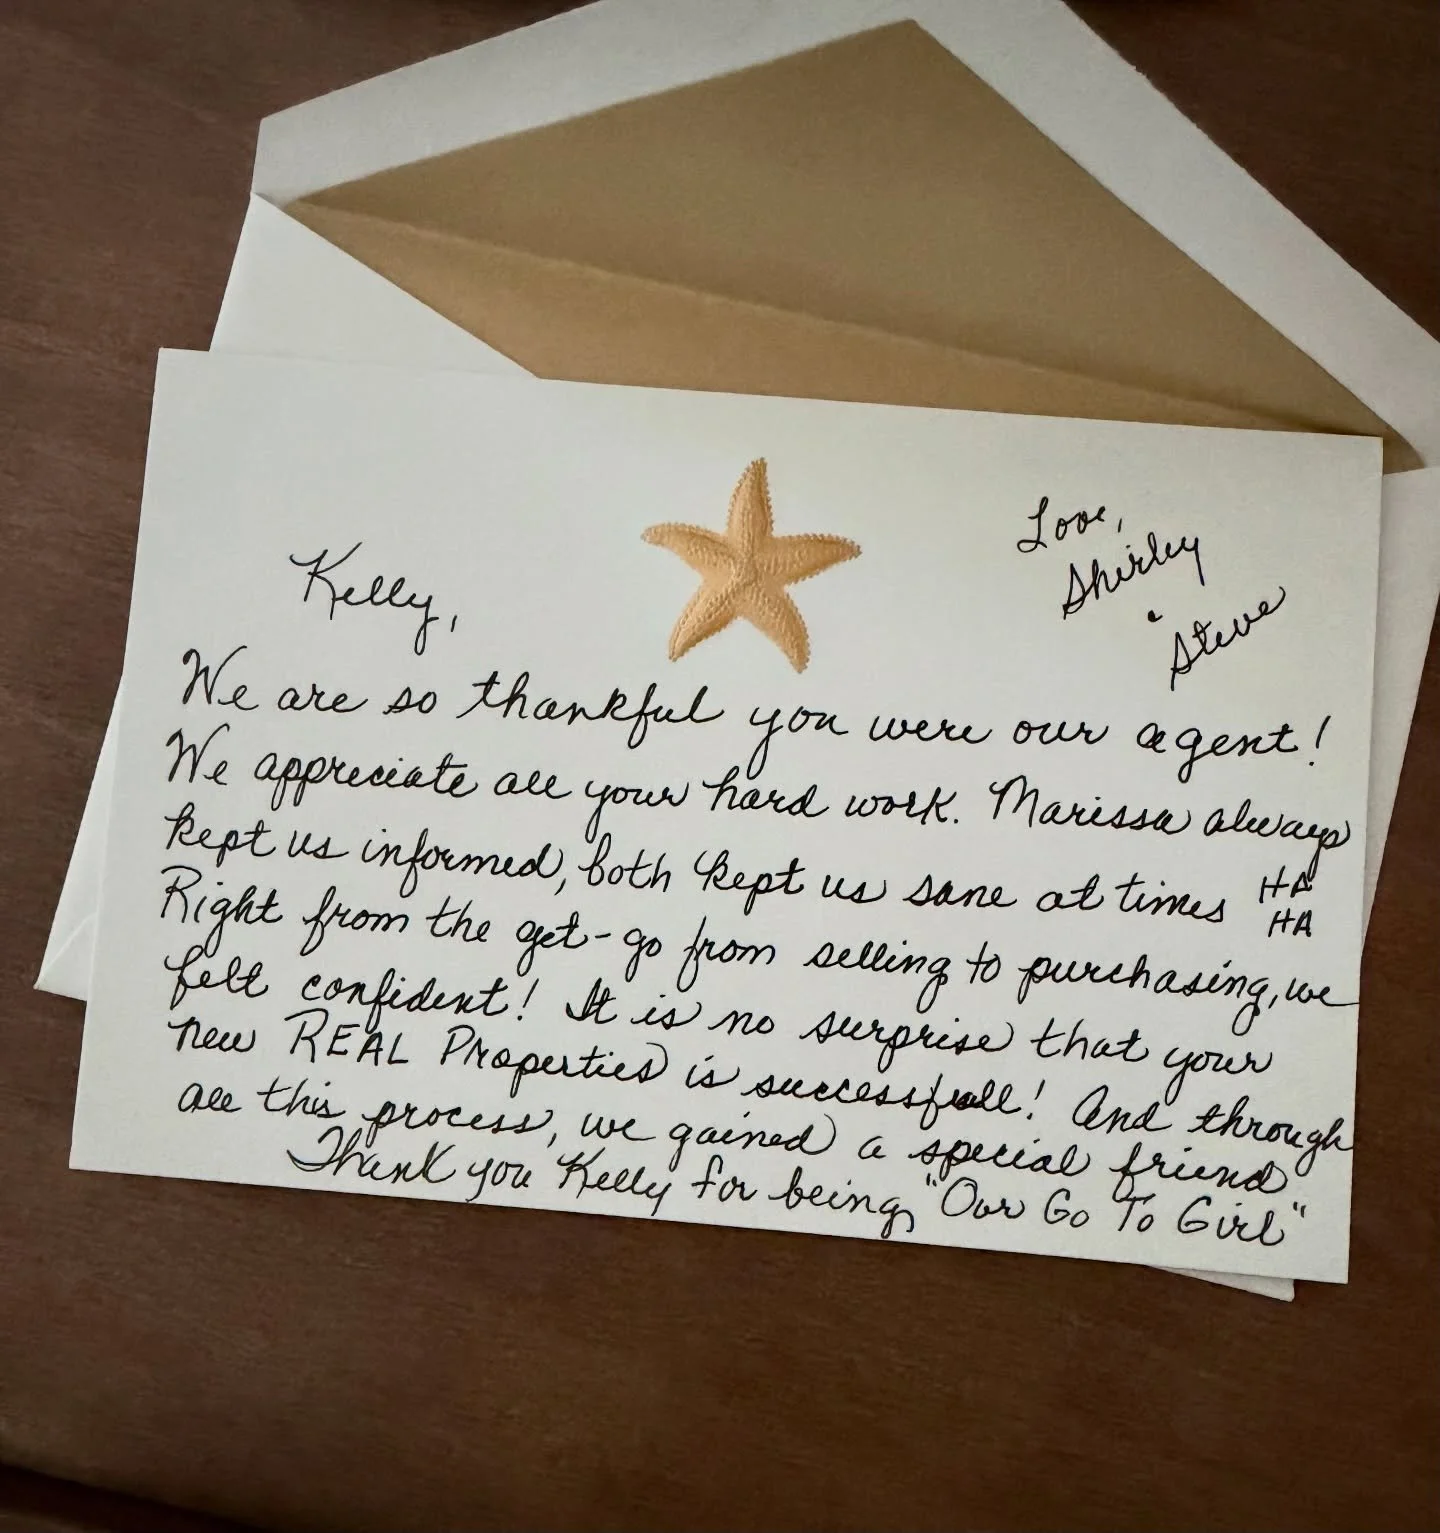 Kelly,
We are so thankful you were our agent!
We appreciate all your hard work. Marissa always
kept us informed, both kept us sane at times HA
HA
Right from the get-go from selling to purchasing, we
felt confident! It is no surprise that your
new REAL Properties is successfull! And through
all this process, we gained a special friend
Thank you Kelly for being, "Our Go To Girl"
Love,
Shirley
&
Steve